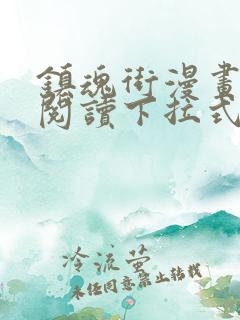 鎮魂街漫畫
閱讀下拉式
冷流螢
未经同意禁止转载